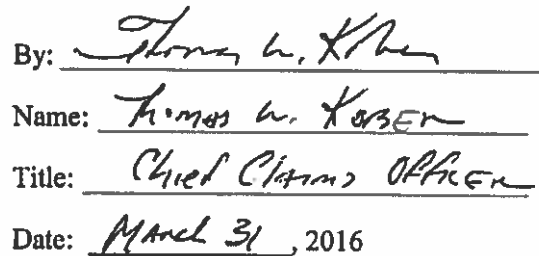 By: Thomas W. Kober
Name: Thomas W. Kober
Title: Chief Claims Officer
Date: March 31, 2016